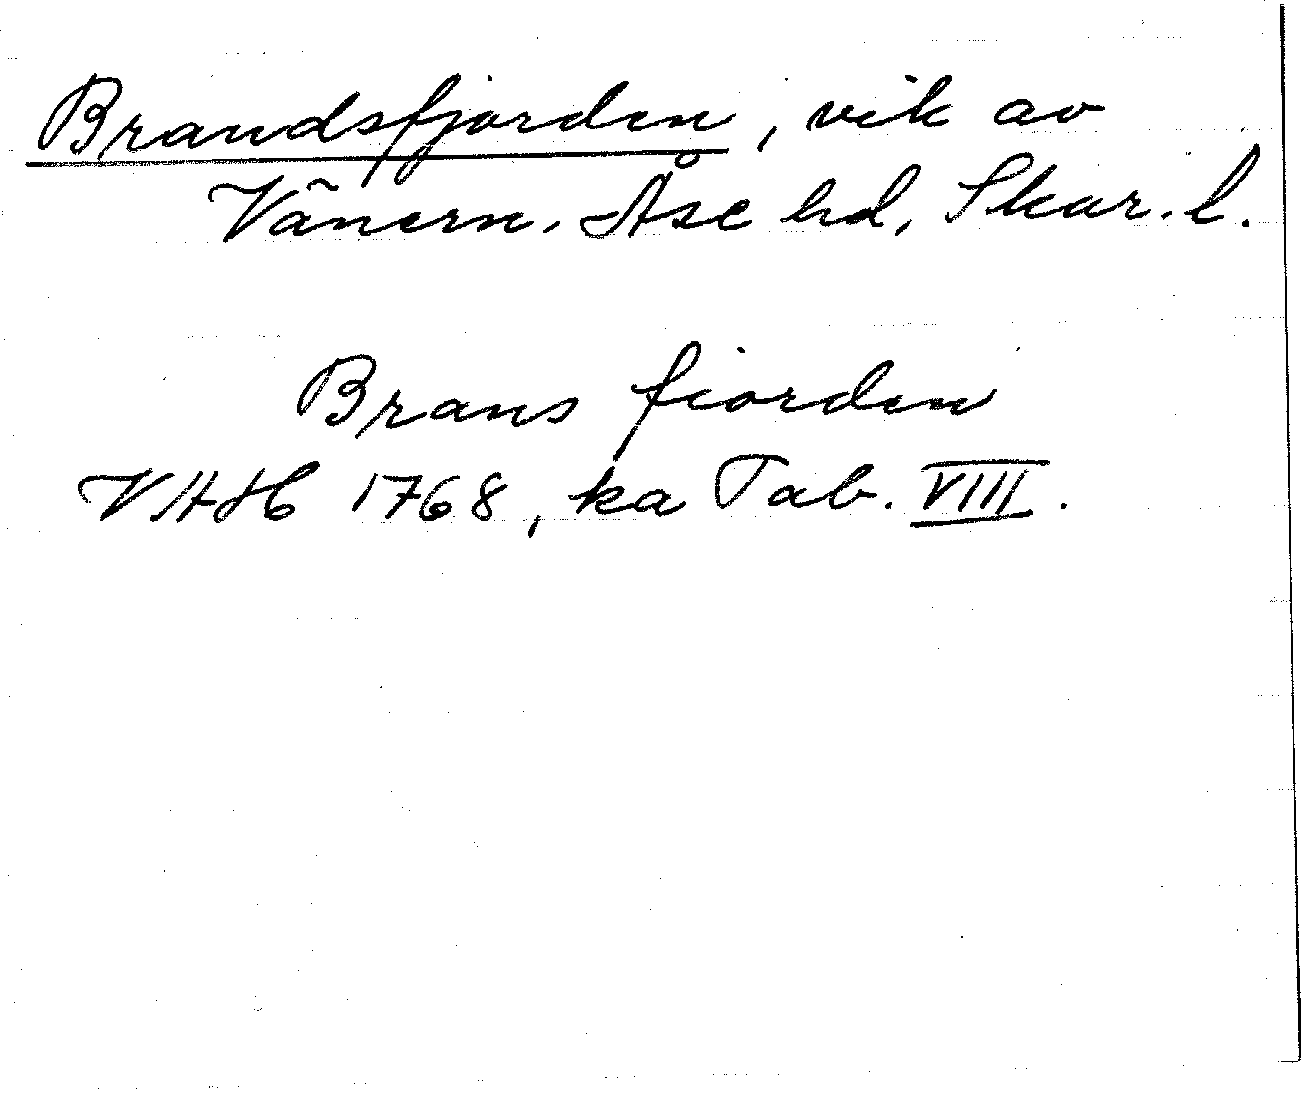 Brandsfjorden, vik av
Vänern. Åse hd, Skar. l.
Brans fiorden
VAH 1768, ka Tab. VIII.